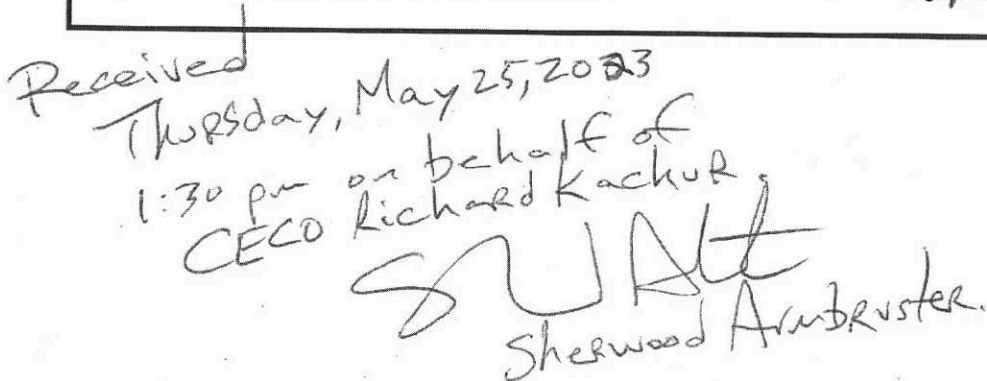 Received
Thursday, May 25, 2023
1:30 pm on behalf of
CECO Richard Kachur.
Sherwood Armbruster.